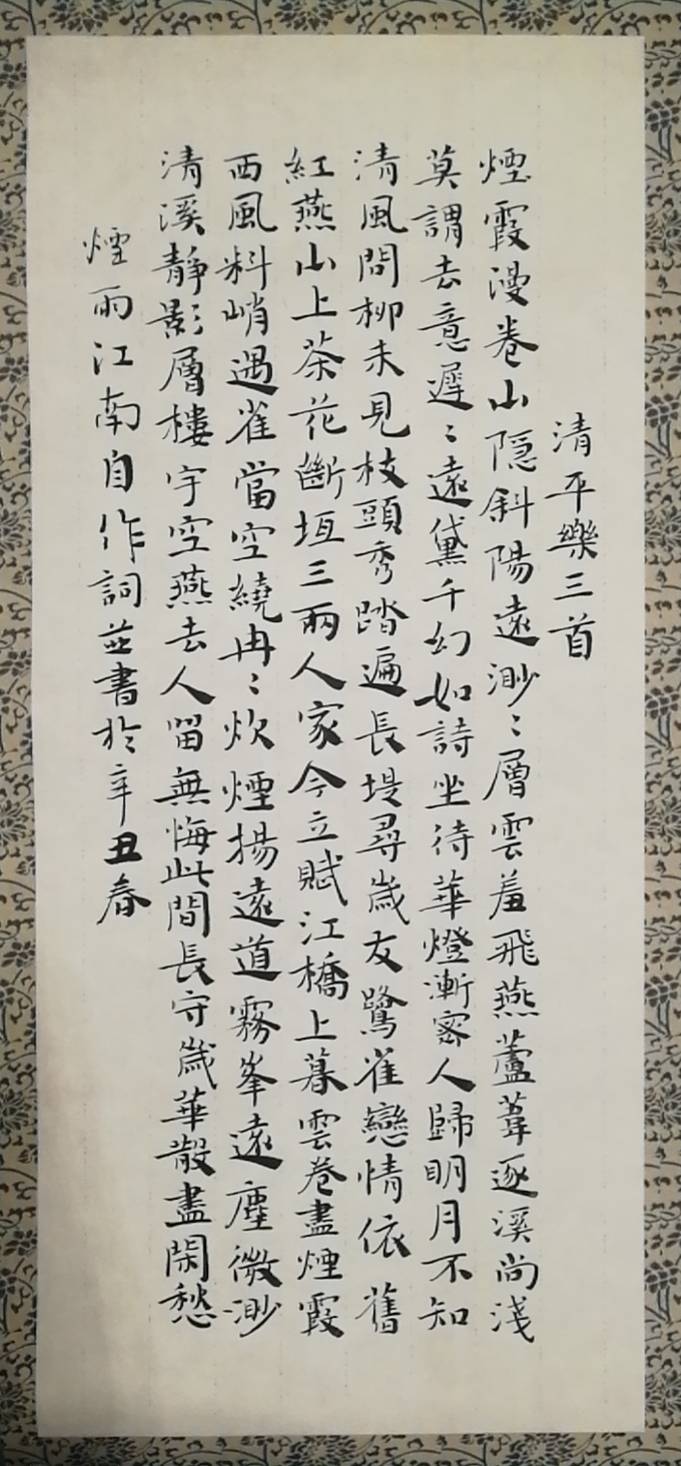 清平樂三首
煙霞漫卷山隱斜陽遠渺〻層雲羞飛燕蘆葦逐溪尚淺
莫謂去意遲〻遠黛千幻如詩坐待華燈漸密人歸明月不知
清風問柳未見枝頭秀踏遍長堤尋歲友鷺雀戀情依舊
紅燕山上茶花斷垣三兩人家今立賦江橋上暮雲卷盡煙霞
西風料峭遇雀當空繞冉〻炊煙揚遠道霧峯遠塵微渺
清溪靜影層樓宇空燕去人留無悔此間長守歲華散盡閑愁
煙雨江南自作詞並書於辛丑春